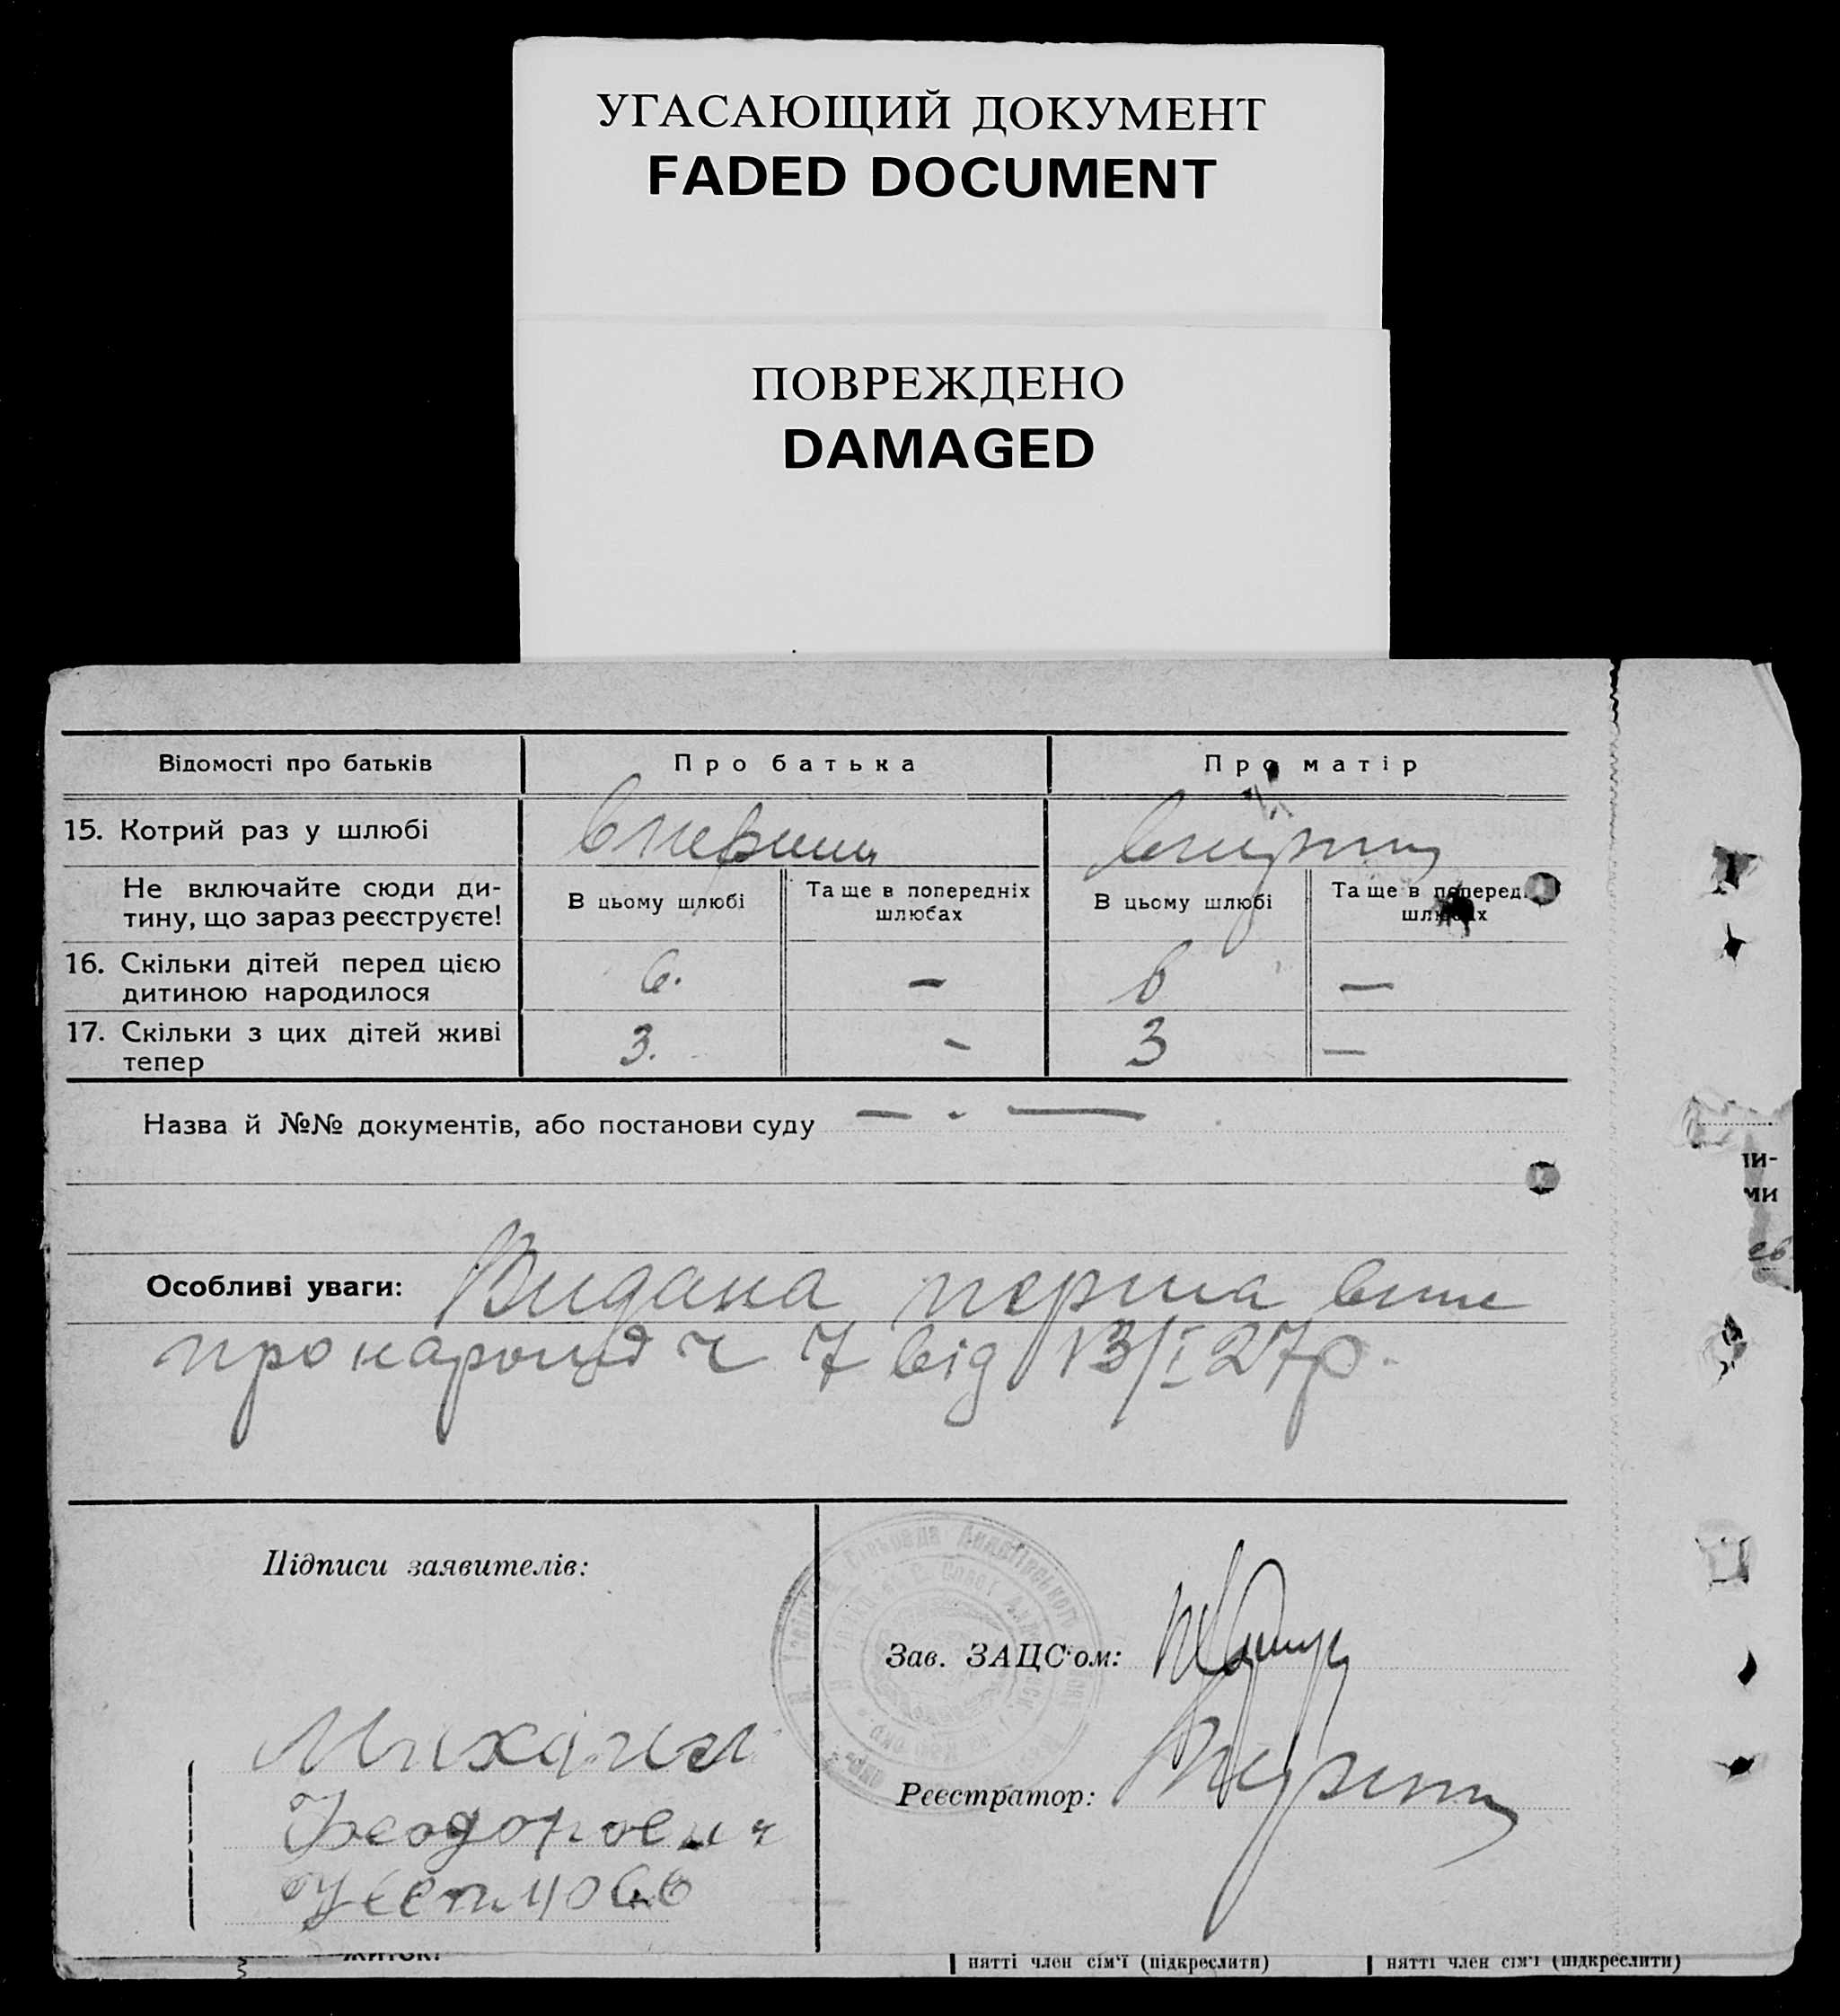 УГАСАЮЩИЙ ДОКУМЕНТ
FADED DOCUMENT
ПОВРЕЖДЕНО
DAMAGED
Відомості про батьків
Про батька
Про матір
15. Котрий раз у шлюбі
вперше
вперше
Не включайте сюди ди-
тину, що зараз реєструєте!
В цьому шлюбі
Та ще в попередніх
шлюбах
В цьому шлюбі
Та ще в поперед
шлюбах
16. Скільки дітей перед цією
дитиною народилося
6.
—
6
—
17. Скільки з цих дітей живі
тепер
3.
-
3
—
Назва й №№ документів, або постанови суду — - —
ли-
ми
Особливі уваги: Видана перша
про народж ч 7 від 13/I 27р.
Підписи заявителів:
Зав. ЗАЦС'ом:
Реєстратор:
Михаил
Феодорович
житок:
нятті член сім'ї (підкреслити)
нятті член сім'ї (підкреслити)